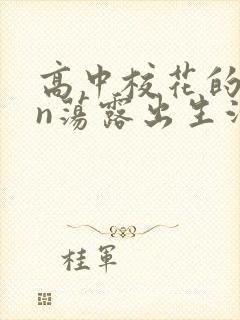 高中校花的
n荡露出生活
桂军